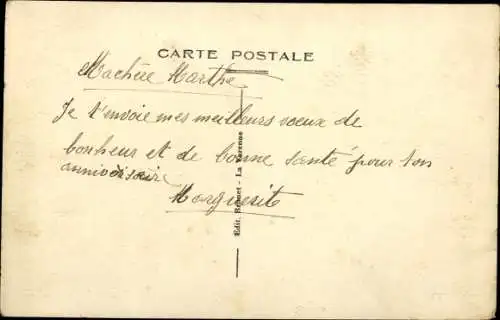 CARTE POSTALE
Machère Marthe
Je t'envoie mes meilleurs voeux de
bonheur et de bonne santé pour ton
anniversaire
Marguerit
Edit. - La Varenne